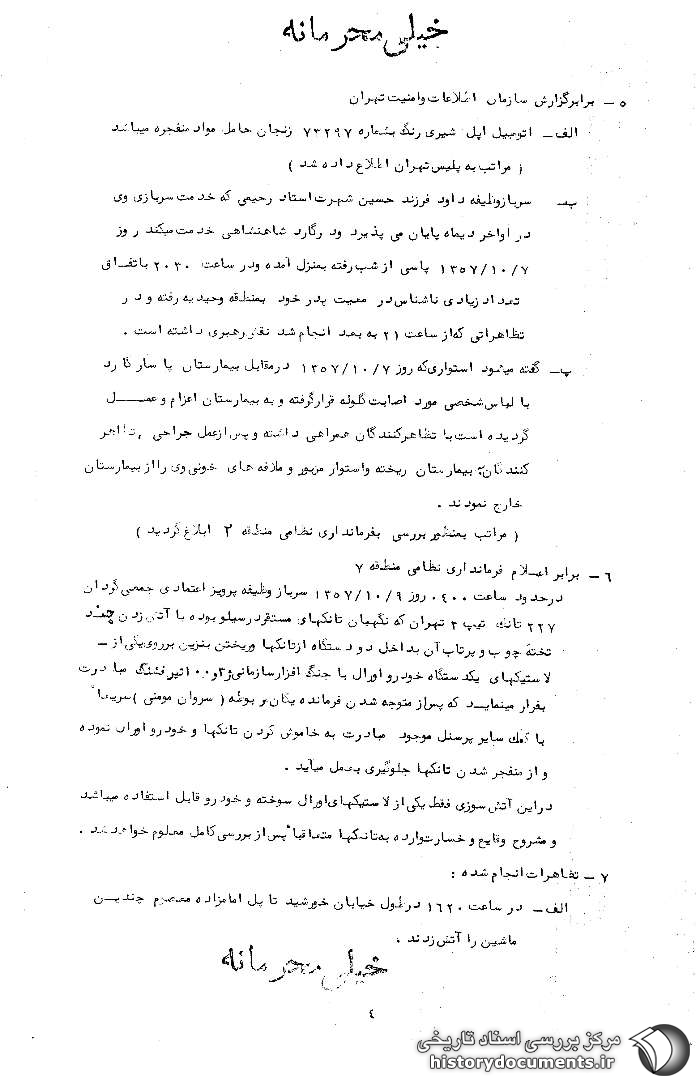 خیلی محرمانه
۵ – برابرگزارش سازمان اطلاعات وامنیت تهران
الف – اتومبیل اپل شیری رنگ بشماره ۷۳۲۹۷ زنجان حامل مواد منفجره میباشد
( مراتب به پلیس تهران اطلاع داده شد )
ب – سرباز وظیفه داود فرزند حسین شهرت استاد رحیمی که خدمت سربازی وی
در اواخر دیماه پایان می پذیرد ودرگارد شاهنشاهی خدمت میکند روز
۱۳۵۷/۱۰/۷ پاسی از شب رفته بمنزل آمده ودر ساعت ۲۰۳۰ باتفاق
تعداد زیادی ناشناس در معیت پدر خود بمنطقه وحیدیه رفته و در
تظاهراتی که از ساعت ۲۱ به بعد انجام شد نقش رهبری داشته است .
پ – گفته میشود استواری که روز ۱۳۵۷/۱۰/۷ درمقابل بیمارستان پاسارگارد
با لباس شخصی مورد اصابت گلوله قرارگرفته و به بیمارستان اعزام وعمل
گردیده است با تظاهرکنندگان همراهی داشته و پس ازعمل جراحی ، تظاهر
کنندگان به بیمارستان ریخته واستوار مزبور و ملافه های خونی وی را از بیمارستان
خارج نمودند .
( مراتب بمنظور بررسی بفرمانداری نظامی منطقه ۲ ابلاغ گردید )
۶ – برابر اعلام فرمانداری نظامی منطقه ۷
درحدود ساعت ۰۴۰۰ روز ۱۳۵۷/۱۰/۹ سرباز وظیفه پرویز اعتمادی جمعی گردان
۲۲۷ تانک تیپ ۲ تهران که نگهبان تانکهای مستقر درسیلو بوده با آتش زدن چند
تخته چوب و پرتاب آن بداخل دو دستگاه ازتانکها وریختن بنزین برروی یکی از –
لاستیکهای یکدستگاه خودرو اورال با جنگ افزار سازمانی ژ۳ و ۱۰۰ تیر فشنگ مبادرت
بفرار مینماید که پس از متوجه شدن فرمانده یگان مربوطه ( سروان مومنی ) سریعاً
با کمك سایر پرسنل موجود مبادرت به خاموش کردن تانکها و خودرو اورال نموده
و از منفجر شدن تانکها جلوگیری بعمل میآید .
دراین آتش سوزی فقط یکی از لاستیکهای اورال سوخته و خودرو قابل استفاده میباشد
و مشروح وقایع و خسارت وارده به تانکها متعاقباً پس از بررسی کامل معلوم خواهدشد .
۷ – تظاهرات انجام شده :
الف – در ساعت ۱۶۲۰ درطول خیابان خورشید تا پل امامزاده معصوم چندین
ماشین را آتش زدند .
خیلی محرمانه
٤
مرکز بررسی اسناد تاریخی
historydocuments.ir